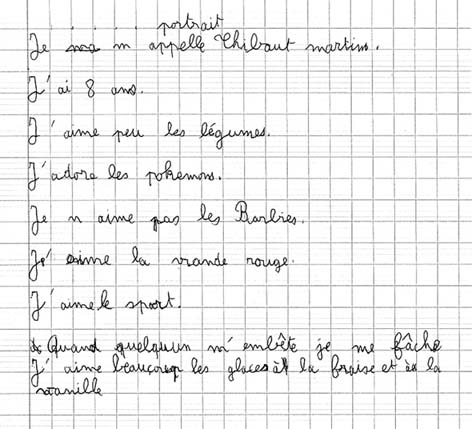 portrait
Je m appelle Thibaut martins.
J'ai 8 ans.
J'aime peu les légumes.
J'adore les pokemons.
Je n aime pas les Barbies.
J'aime la viande rouge.
J'aime le sport.
Quand quelquun m'embête je me fâche
J'aime beaucoup les glaces à la fraise et à la
vanille